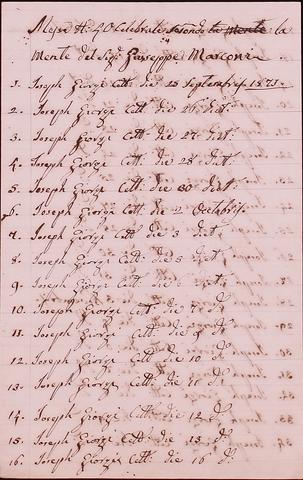 Messe N. 40 Celebrate secondo la mente la
mente del Sig. Giuseppe Marconi
1. Joseph Giorgi Cett: die Septembris 1871
2. Joseph Giorgi Cett: die 26 dict:
3. Joseph Giorgi Cett: die 27 dict
4. Joseph Giorgi Cett: die 28 dict
5. Joseph Giorgi Cett: die 30 dict.
6. Joseph Giorgi Cett: die 2 Octobris
7. Joseph Giorgi Cett: die 3 dict:
8. Joseph Giorgi Cett: die 5 dict:
9. Joseph Giorgi Cett: die 6 dict:
10. Joseph Giorgi Cett: die d:
11. Joseph Giorgi Cett: die d:
12. Joseph Giorgi Cett: die 10 d:
13. Joseph Giorgi Cett: die 11 d:
14. Joseph Giorgi Cett: die 12 d:
15. Joseph Giorgi Cett: die 13 d:
16. Joseph Giorgi Cett: die 16 d: